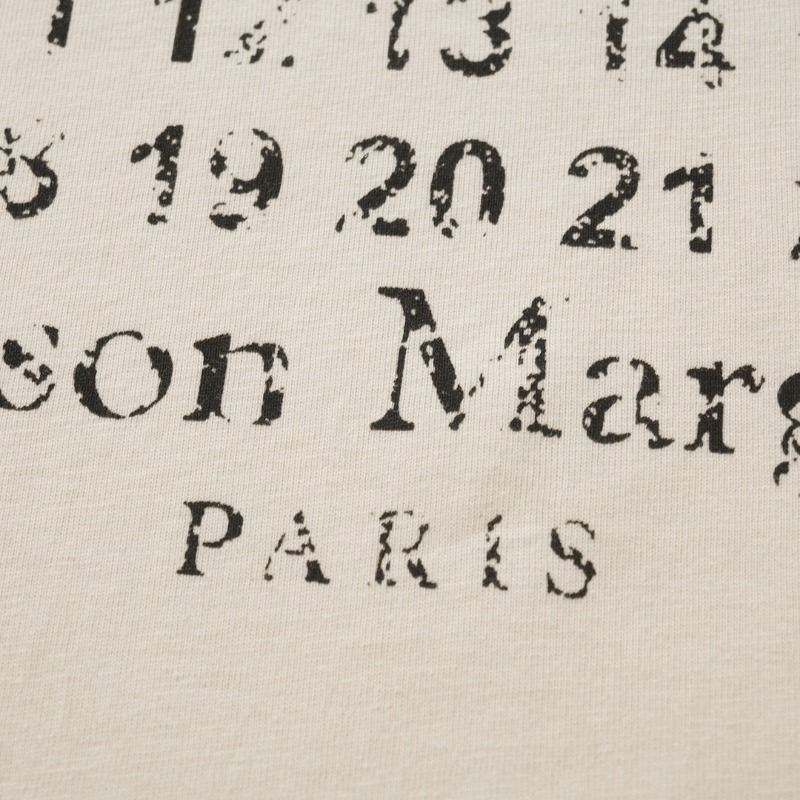 12 13 14
19 20 21
son Marg
PARIS